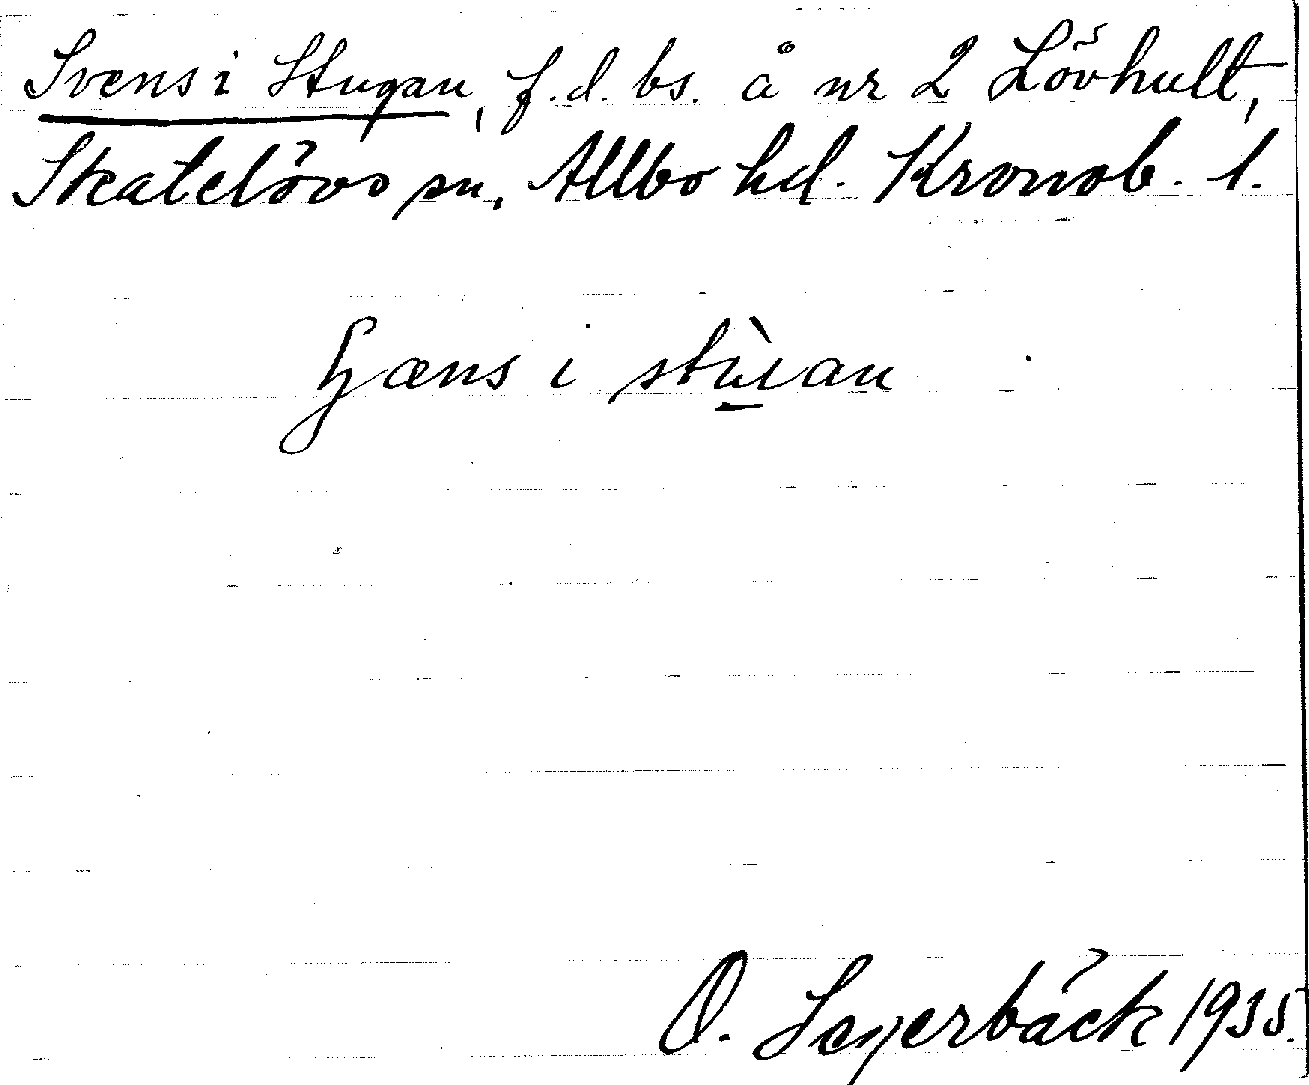 Svens i Stugan, f.d. bs. å nr 2 Lövhult,
Skatelövs sn, Allbo hd. Kronob. l.
hæns i stùɩan
O. Lagerbäck 1935.